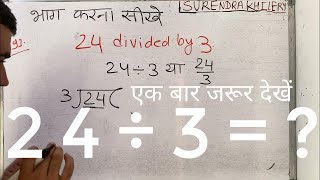 भाग करना सीखे
SURENDRA KHILERY
24 divided by 3
24÷3 या 24/3
3)24(
एक बार जरूर देखें
24÷3=?